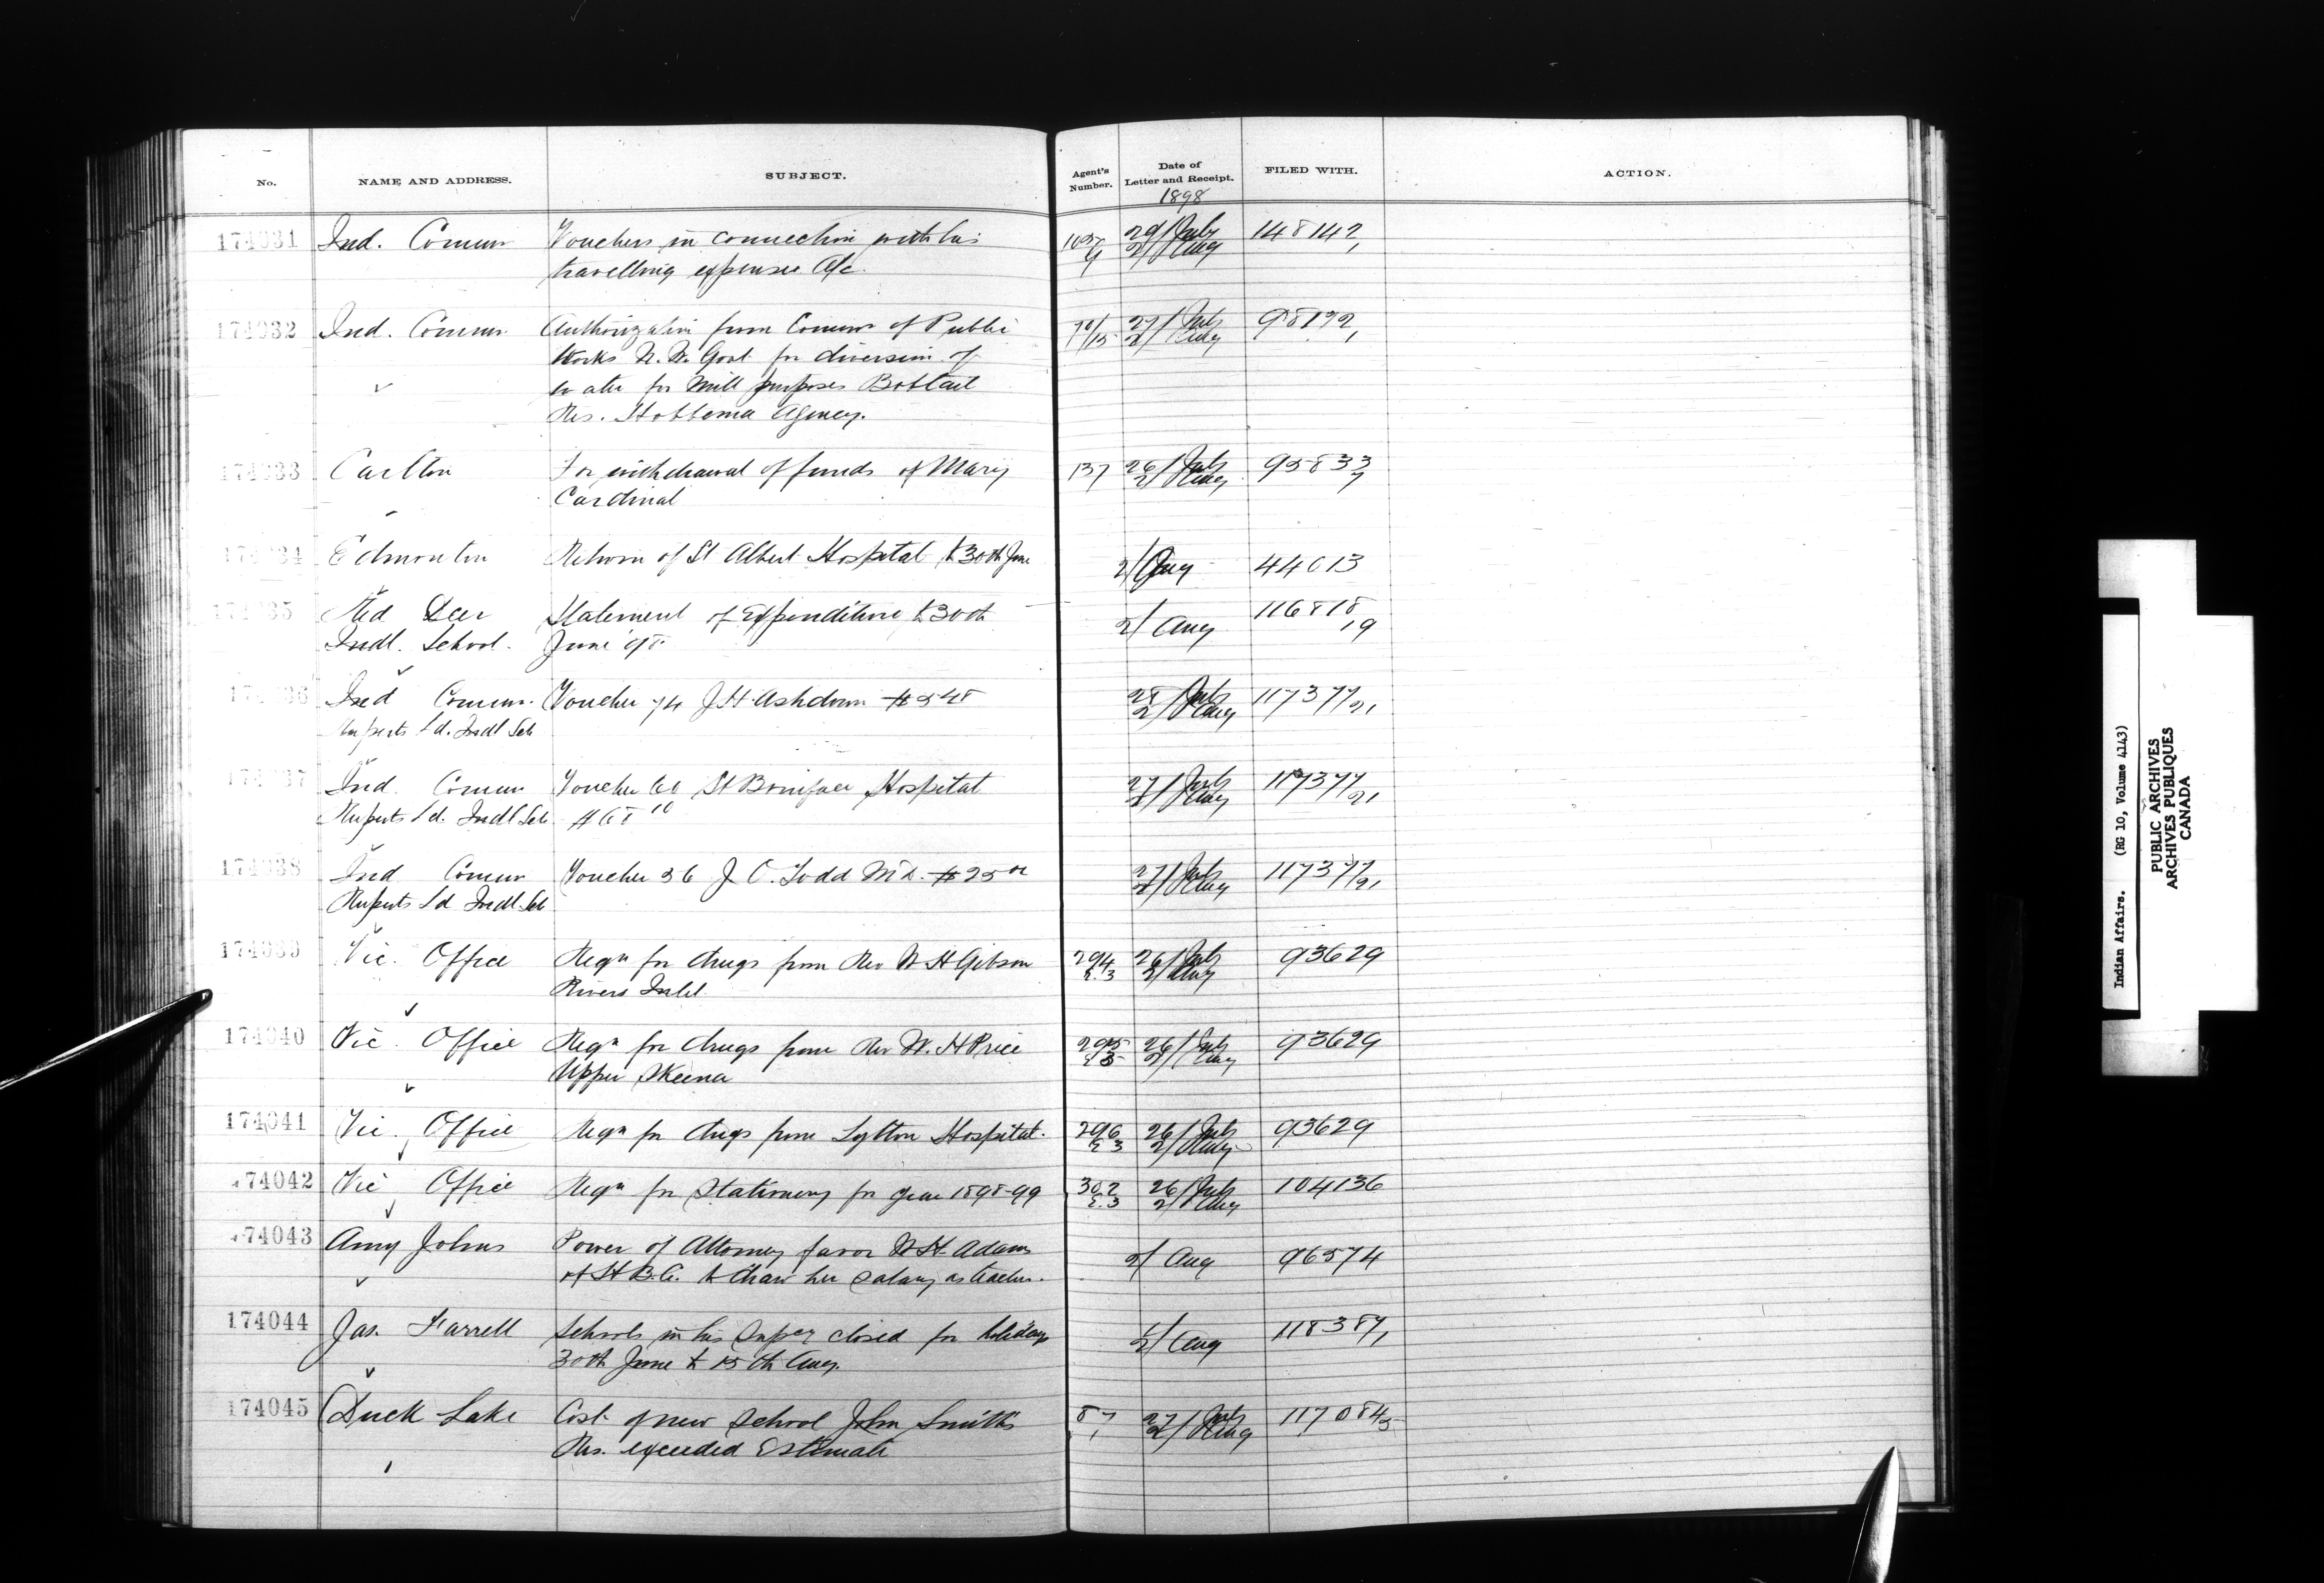 No. NAME AND ADDRESS. SUBJECT. Agent's Number. Date of Letter and Receipt. FILED WITH. ACTION.
1898
174031 Ind. Commr Vouchers in connection with his 29/July 148142
travelling expenses a/c. 2/Aug
174032 Ind. Commr Authorization from Commr of Public 70/15 27/July 98192
Works N.W. Govt for diversion of 2/Aug
water for Mill purposes Bobtail
Res. Hobbema Agency.
174033 Carlton For withdrawal of funds of Mary 137 26/July 95833
Cardinal 2/Aug 7
174034 Edmonton Return of St Albert Hospital to 30th June 2/Aug 44013
174035 Red Deer Statement of Expenditure to 30th 2/Aug 116818
Indl. School. June 98 19
174036 Ind Commr. Voucher 74 J.H. Ashdown $5 48 28/July 117377/21
Ruperts Ld. Indl Sch 2/Aug
174037 Ind. Commr Voucher St Boniface Hospital 27/July 117377/21
Ruperts Ld. Indl Sch 2/Aug
174038 Ind Commr Voucher 36 J. O. Todd M.D. $25 00 27/July 117377/21
Ruperts Ld Indl Sch 2/Aug
174039 Vic. Office Reqn for drugs from Rev W H Gibson 294 26/July 93629
Rivers Inlet E.3 2/Aug
174040 Vic. Office Reqn for drugs from Rev W. H Price 295 26/July 93629
Upper Skeena E3 2/Aug
174041 Vic. Office Reqn for drugs from Lytton Hospital. 296 26/July 93629
E 3 2/Aug
174042 Vic Office Reqn for Stationery for year 1898-99 302 26/July 104136
E.3 2/Aug
174043 Amy Johns Power of Attorney favor W.H. Adams 2/Aug 96574
of H.B.C. to draw her salary as teacher.
174044 Jas. Farrell Schools in his Supcy closed for holidays 118387,
30th June to 15th Aug. 2/Aug
174045 Duck Lake Cost of new School John Smith's 87 27/July 117084/5
Res. exceeded Estimate 2/Aug
Indian Affairs. (RG 10, Volume 4143)
PUBLIC ARCHIVES
ARCHIVES PUBLIQUES
CANADA